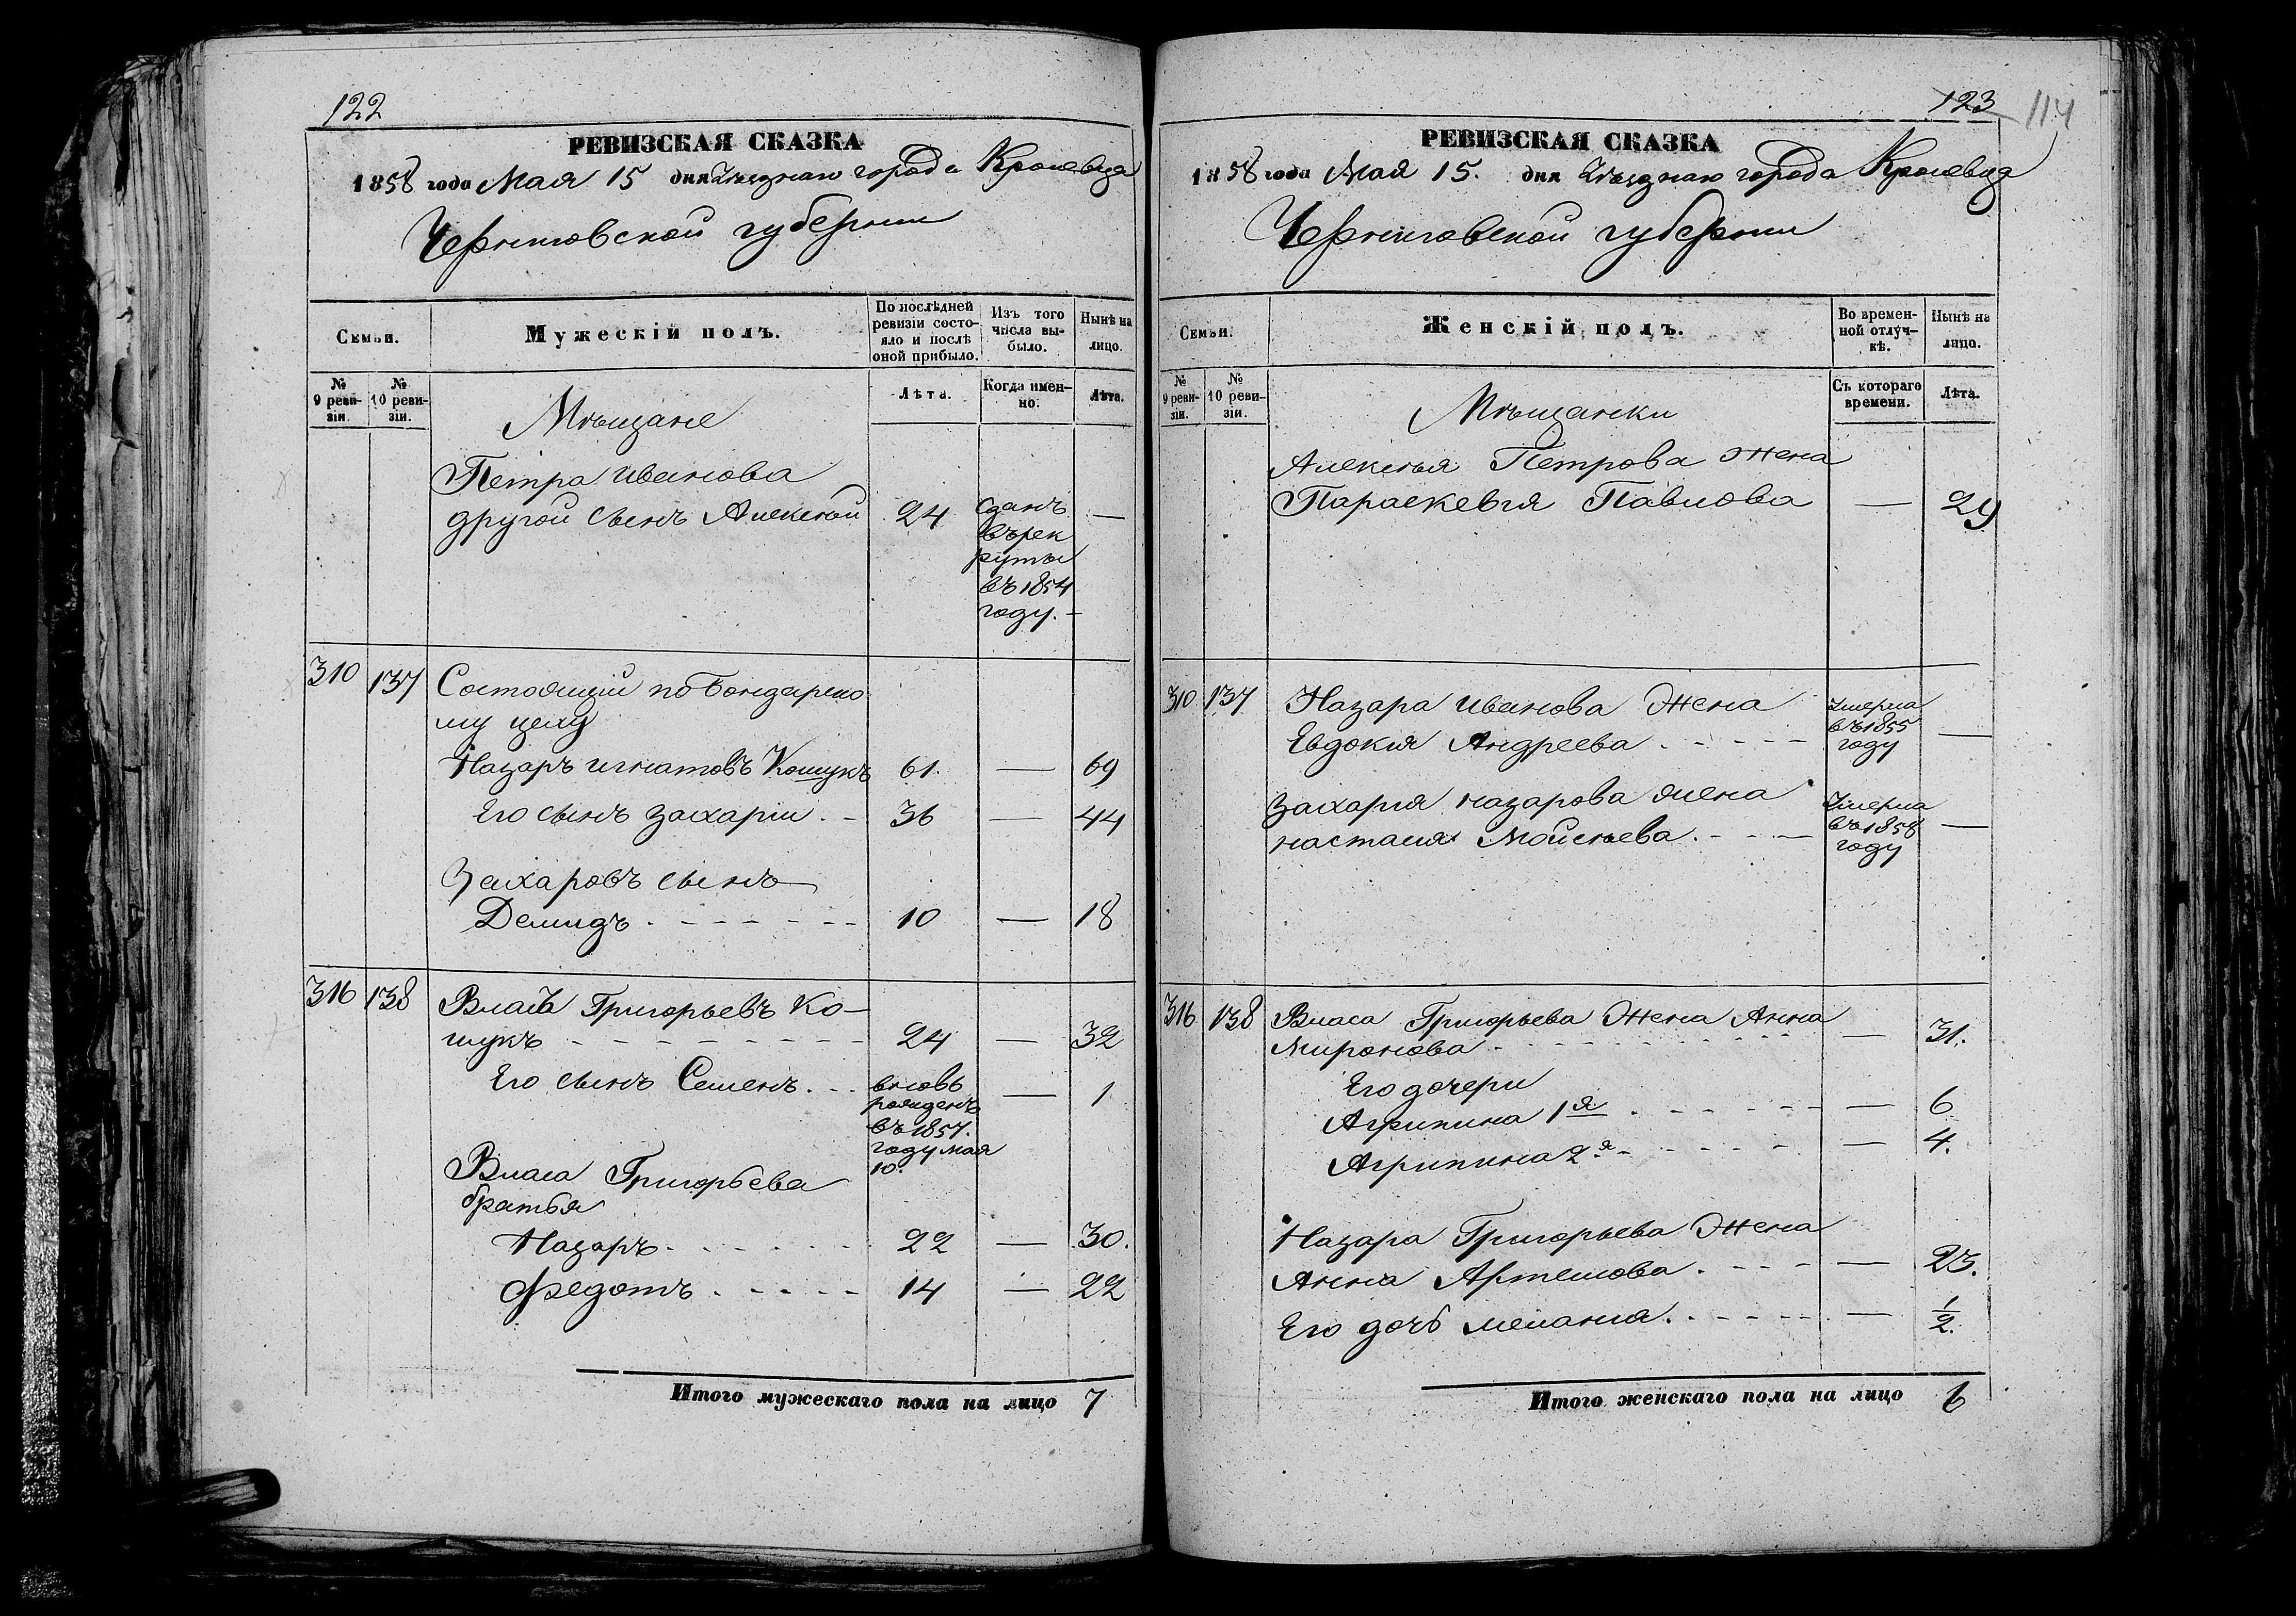 122
РЕВИЗСКАЯ СКАЗКА
1858 года Мая 15 дня Уѣзднаго города Кролевца
Черниговской губернии
Семьи.
Мужескій полъ.
По послѣдней ревизіи состояло и послѣ оной прибыло.
Изъ того числа выбыло.
Нынѣ на лицо.
№ 9 ревизіи.
№ 10 ревизіи.
Лѣта.
Когда именно.
Лѣта.
Мѣщане
Петра Иванова
другой сынъ Алексѣй 24 сданъ —
въ рек
руты
въ 1854
году. –
310 137 Состоящій по Бондарско
му цеху
Назаръ Игнатовъ Кошукъ 61. — 69
Его сынъ Захарій. – 36 — 44
Захаровъ сынъ
Демидъ 10 — 18
316 138 Власъ Григорьевъ Ко–
шукъ 24 — 32
Его сынъ Семенъ вновь — 1
рожденъ
въ 1857.
году мая
10.
Власа Григорьева
братья
Назаръ 22 — 30.
Федотъ 14 — 22
Итого мужескаго пола на лицо 7
123 114
РЕВИЗСКАЯ СКАЗКА
1858 года Мая 15. дня Уѣзднаго города Кролевца
Черниговской губернии
Семьи.
Женскій полъ.
Во временной отлучкѣ.
Нынѣ на лицо.
№ 9 ревизіи.
№ 10 ревизіи.
Съ котораго времени.
Лѣта.
Мѣщанки
Алексѣя Петрова жена
Параскевія Павлова — 29
310 137 Назара Иванова Жена Умерла
въ 1855
Евдокия Андреева году —
Захария Назарова жена Умерла
настасия Мойсѣева въ 1858 —
году
316 138 Власа Григорьева Жена Анна
Миронова — 31.
Его дочери
Агрипина 1я — 6
Агрипина 2я — 4.
Назара Григорьева Жена
Анна Артемова — 23.
Его дочь мелания — 1/2.
Итого женскаго пола на лицо 6